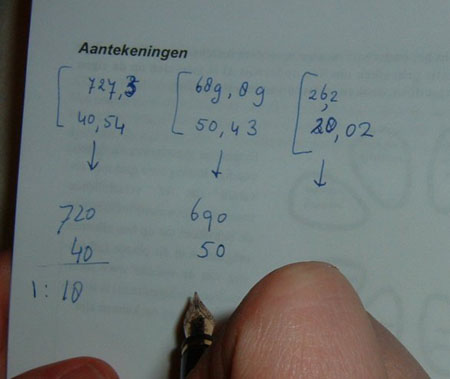 Aantekeningen
727,3 689,89 262
40,54 50,43 20,02
↓ ↓ ↓
720 690
40 50
1: 18